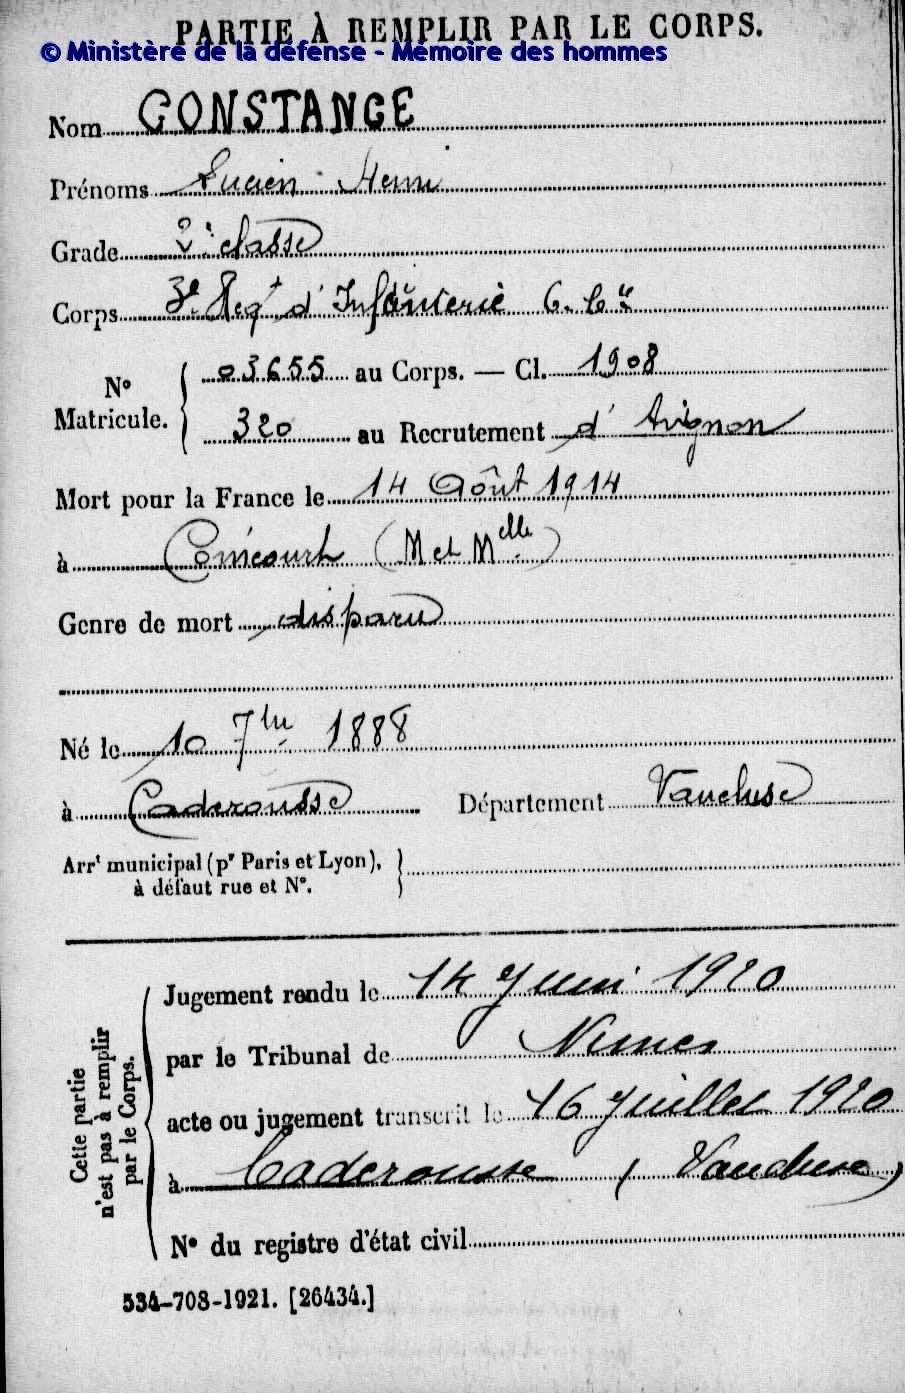 PARTIE À REMPLIR PAR LE CORPS.
© Ministère de la défense - Mémoire des hommes
Nom CONSTANCE
Prénoms Lucien - Henri
Grade 2e classe
Corps 3e Regt d'Infanterie
N° Matricule.
03655 au Corps. — Cl. 1908
320 au Recrutement d'Avignon
Mort pour la France le 14 Août 1914
à Coincourt (M et Melle)
Genre de mort disparu
Né le 10 7bre 1888
à Caderousse Département Vaucluse
Arrt municipal (pr Paris et Lyon),
à défaut rue et N°.
Cette partie
n'est pas à remplir
par le Corps.
Jugement rendu le 14 Juin 1920
par le Tribunal de Nimes
acte ou jugement transcrit le 16 Juillet 1920
à Caderousse (Vaucluse)
N° du registre d'état civil
534-708-1921. [26434.]